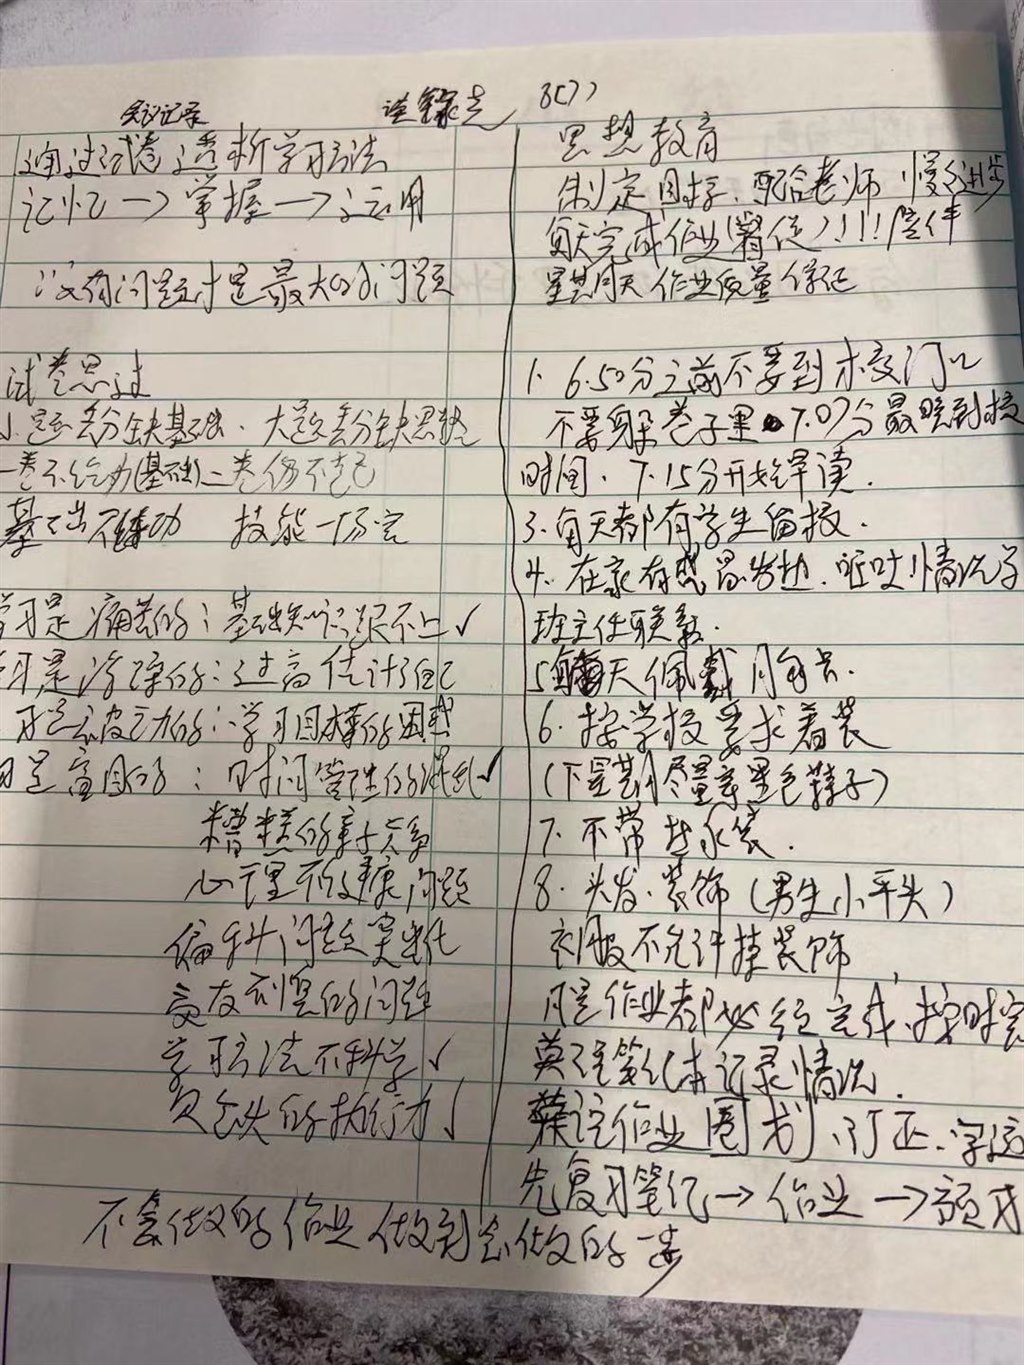 会议记录
8(7)
通过试卷透析学习方法
记忆→掌握→运用
没有问题才是最大的问题
试卷思过
小题丢分缺基础、大题丢分缺思维
一卷不给力(基础)二卷伤不起
基本出不练功 技能一场空
学习是痛苦的：基础知识跟不上✓
习是浮躁的：过高估计了自己
习是被动的：学习目标的困惑
习是盲目的：时间管理的混乱✓
糟糕的亲子关系
心理不健康问题
偏科问题突出化
交友刘置的问题
学习方法不科学✓
欠缺的执行力✓
不会做的作业做到会做的一步
思想教育
制定目标、配合老师 慢慢进步
每天完成作业(督促)！！！陪伴
星期天作业质量保证
1、6.50分之前不要到校门口
不要躲巷子里 7.07分最晚到校
时间、7.15分开始早读.
3、每天都有学生留校.
4、在家有感冒发热、呕吐！情况与
班主任联系.
5 每天佩戴胸卡.
6、按学校要求着装
(下星期尽量穿黑色鞋子)
7、不带热水袋.
8、头发、装饰(男生小平头)
衣服不允许挂装饰
凡是作业都必须完成、按时完
英语笔记本记录情况.
英语作业圈划、订正、字迹
先复习笔记→作业→预习